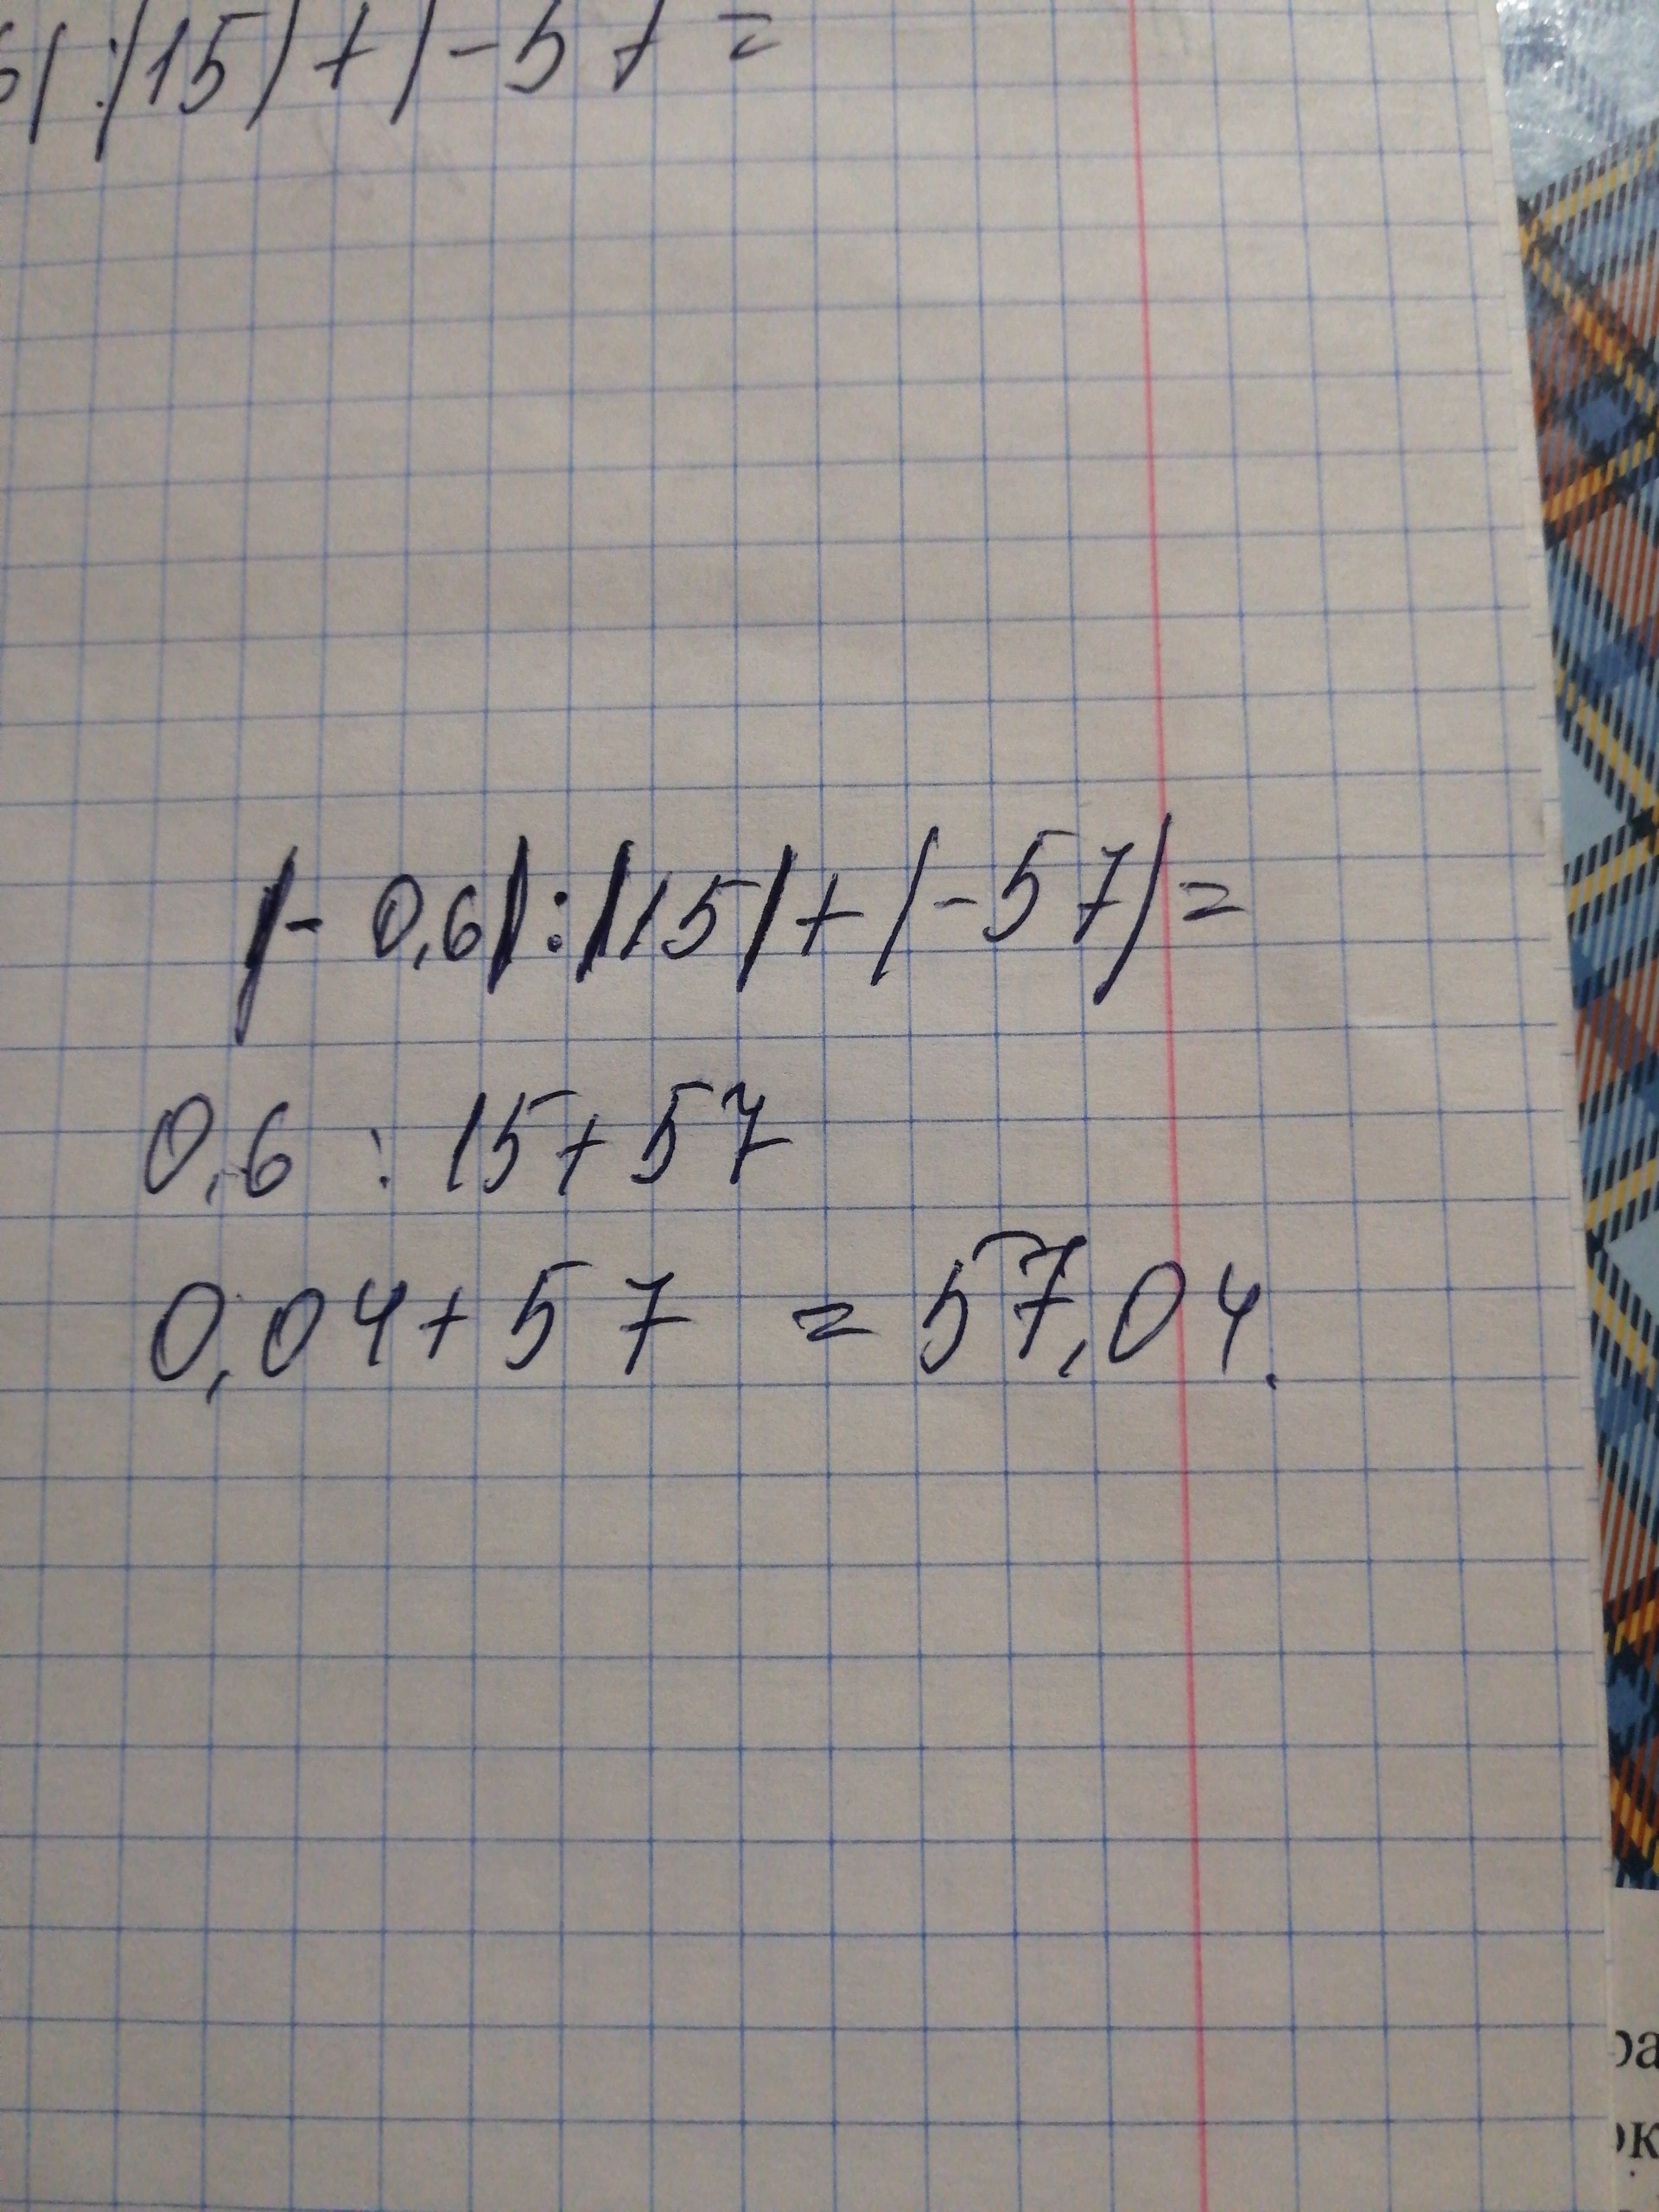 | : |15| + |-57 =
|- 0,6| : |15| + |-57| =
0,6 : 15 + 57
0,04 + 57 = 57,04.